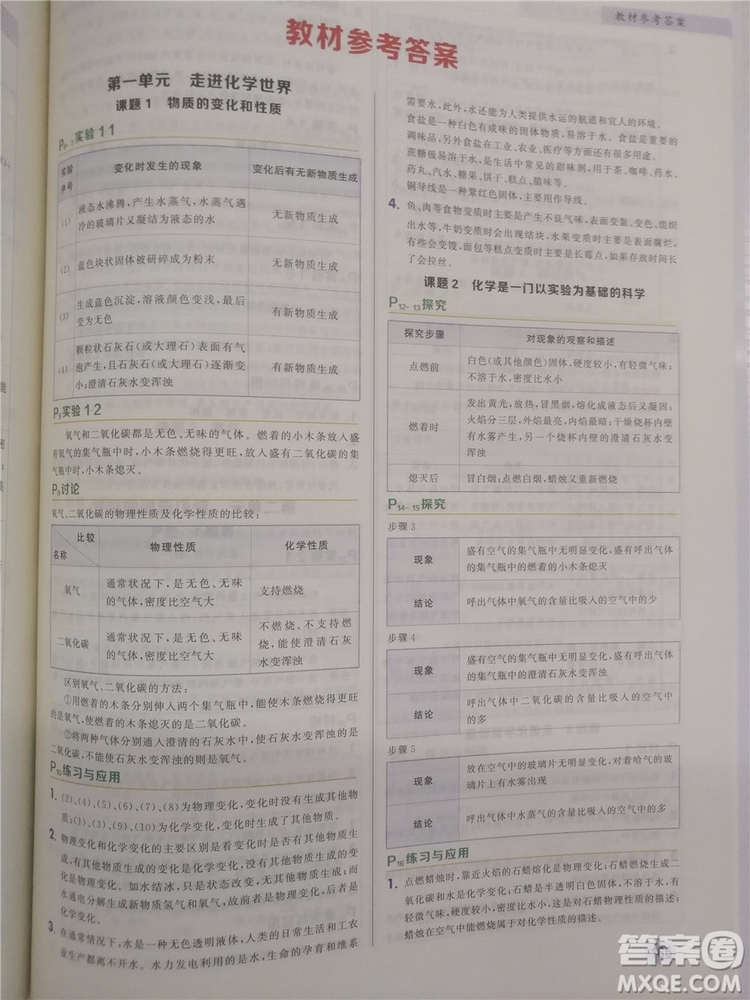 教材参考答案
教材参考答案
第一单元 走进化学世界
课题1 物质的变化和性质
实验1 1
实验
序号
变化时发生的现象
变化后有无新物质生成
(1)
液态水沸腾,产生水蒸气,水蒸气遇
冷的玻璃片又凝结为液态的水
无新物质生成
(2)
蓝色块状固体被研碎成为粉末
无新物质生成
(3)
生成蓝色沉淀,溶液颜色变浅,最后
变为无色
有新物质生成
(4)
颗粒状石灰石(或大理石)表面有气
泡产生,且石灰石(或大理石)逐渐变
小;澄清石灰水变浑浊
有新物质生成
实验1 2
氧气和二氧化碳都是无色、无味的气体。燃着的小木条放入盛
有氧气的集气瓶中时,小木条燃烧得更旺,放入盛有二氧化碳的集
气瓶中时,小木条熄灭。
P9讨论
氧气、二氧化碳的物理性质及化学性质的比较:
比较
名称
物理性质
化学性质
氧气
通常状况下,是无色、无味
的气体,密度比空气大
支持燃烧
二氧化碳
通常状况下,是无色、无味
的气体,密度比空气大
不燃烧、不支持燃
烧,能使澄清石灰
水变浑浊
区别氧气、二氧化碳的方法:
①用燃着的木条分别伸入两个集气瓶中,能使木条燃烧更旺的
是氧气,使燃着的木条熄灭的是二氧化碳。
②将两种气体分别通入澄清的石灰水中,使石灰水变浑浊的是
二氧化碳,不能使石灰水变浑浊的则是氧气。
P10练习与应用
1. (2)、(4)、(5)、(7)、(8)为物理变化,变化时没有生成其他物
质;(1)、(3)、(6)、(9)、(10)为化学变化,变化时生成了其他物质。
2. 物理变化和化学变化的主要区别是看变化时是否有其他物质生
成,有其他物质生成的变化是化学变化,没有生成其他物质的变
化是物理变化。如水结冰,只是状态改变,无其他物质生成;而
水通电分解生成新物质氢气和氧气,故前者是物理变化,后者是
化学变化。
3. 在通常情况下,水是一种无色透明液体,人类的日常生活和工农
业生产都离不开水。水力发电利用的是水,生命的孕育和维系
需要水,此外,水还能为人类提供水运的航道和宜人的环境。
食盐是一种白色有咸味的固体物质,易溶于水。食盐是重要的
调味品,另外食盐在工业、农业、医疗等方面还有重要用途。
蔗糖极易溶于水,是生活中常见的甜味剂,用于食品、汽水、
药丸、汽水、糖果、饼干、糕点、腊味等。
铜导线是一种紫红色固体,主要用作导线。
4. 鱼、肉等食物变质时主要是产生不良气味,表面变黏、变色、组织
出水等,牛奶变质时会出现结块,水果变质时主要是表面腐烂,
有些会变馊,面包等糕点变质时主要是长霉点,如以后情况下还
会了拉丝。
课题2 化学是一门以实验为基础的科学
P12–13探究
探究步骤
对现象的观察和描述
点燃前
白色(或其他颜色)固体,硬度较小,有轻微气味;
不溶于水,密度小于水
燃着时
发出黄光,放热,冒黑烟,熔化成液态后又凝固;
火焰分三层,外层最明亮,内层最暗;干燥烧杯内壁
有水雾产生,另一个烧杯内壁的澄清石灰水变
浑浊
熄灭后
冒白烟;点燃白烟,蜡烛又重新燃烧
P14–15探究
步骤3
现象
盛有空气的集气瓶中无明显变化,盛有呼出气体
的集气瓶中的燃着的小木条熄灭
结论
呼出气体中氧气的含量比吸入的空气中的少
步骤4
现象
盛有空气的集气瓶中无明显变化,盛有呼出气体
的集气瓶中的澄清石灰水变浑浊
结论
呼出气体中二氧化碳的含量比吸入的空气中
的多
步骤5
现象
放在空气中的玻璃片无明显变化,对着哈气的玻
璃片上有水雾出现
结论
呼出气体中水蒸气的含量比吸入的空气中的多
P16练习与应用
1. 点燃蜡烛时,靠近火焰的石蜡熔化是物理变化;石蜡燃烧生成二
氧化碳和水是化学变化;石蜡是半透明白色固体,不溶于水,有
轻微气味,硬度较小,熔点较低,这是对石蜡物理性质的描述。
蜡烛在空气中能燃烧属于对化学性质的描述。
答案圈
MXQE.COM